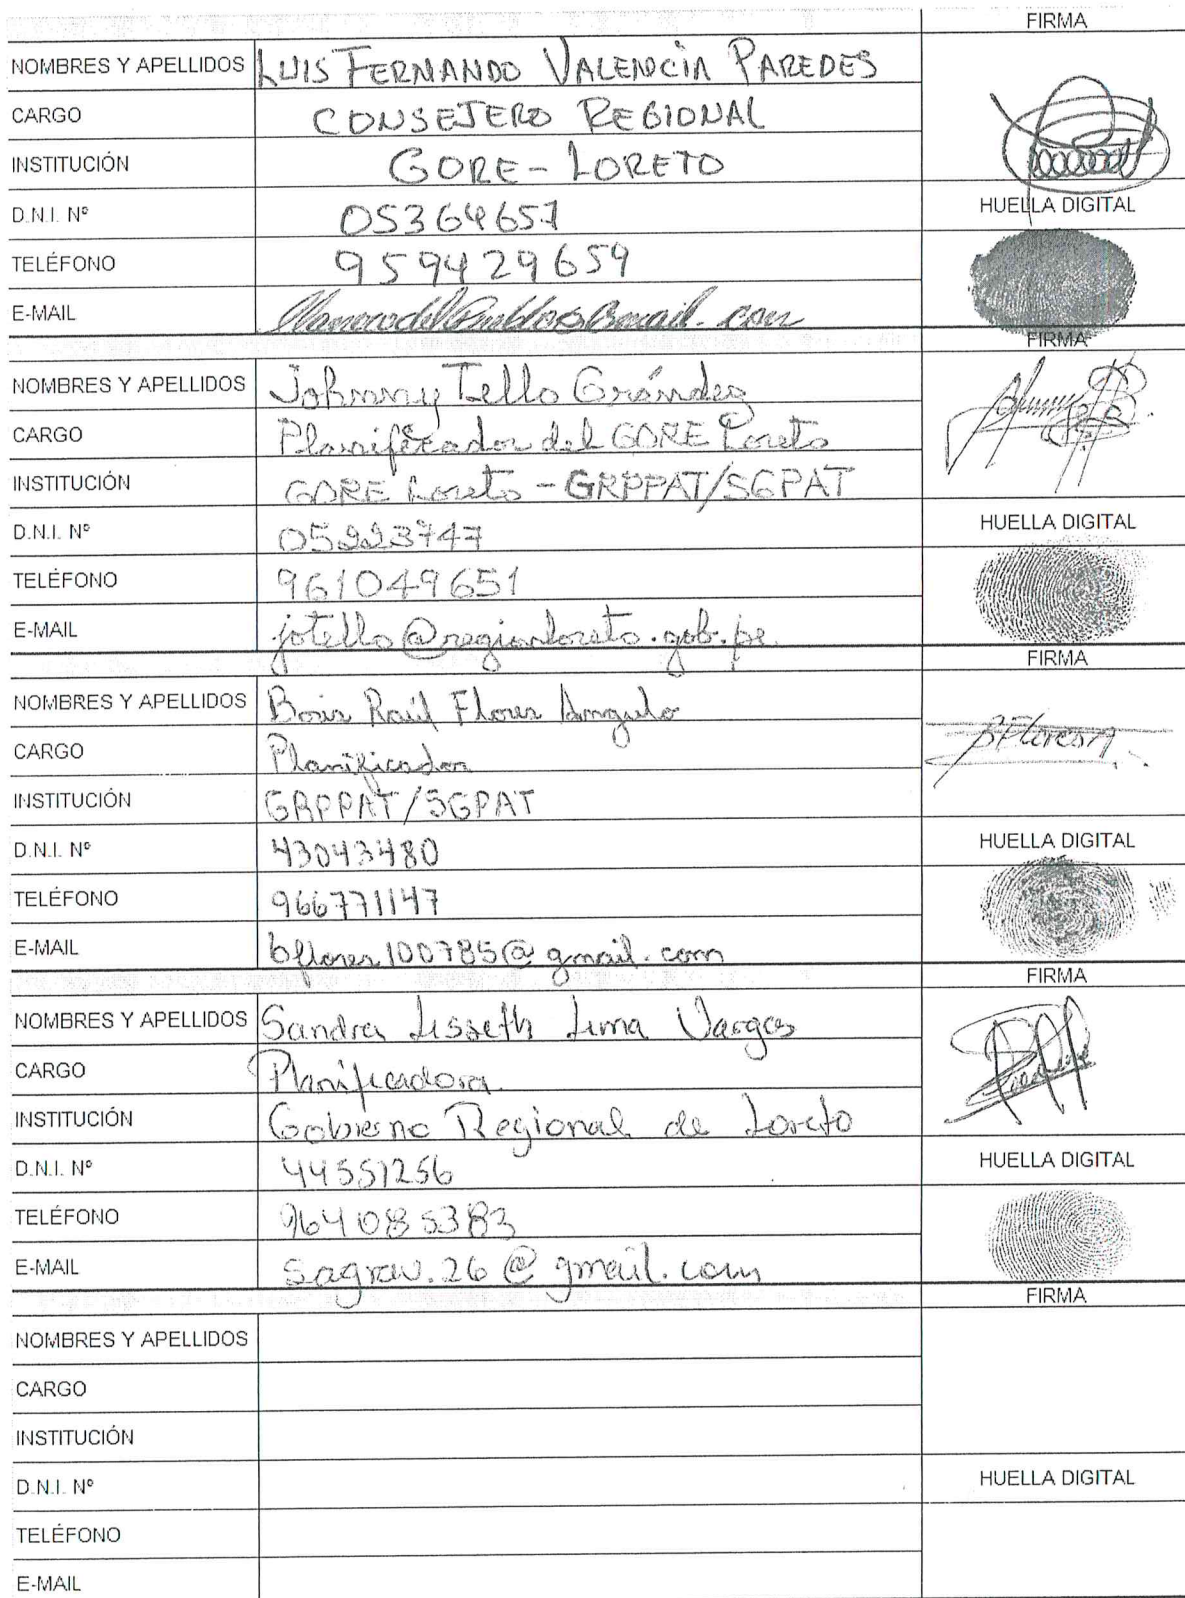 FIRMA
NOMBRES Y APELLIDOS LUIS FERNANDO VALENCIA PAREDES
CARGO CONSEJERO REGIONAL
INSTITUCIÓN GORE - LORETO
D.N.I. Nº 05364657
HUELLA DIGITAL
TELÉFONO 959429659
E-MAIL
FIRMA
NOMBRES Y APELLIDOS Johnny Tello Grández
CARGO Planificador del GORE Loreto
INSTITUCIÓN GORE Loreto - GRPPAT/SGPAT
D.N.I. Nº 05223747
HUELLA DIGITAL
TELÉFONO 961049651
E-MAIL jotello@regionloreto.gob.pe
FIRMA
NOMBRES Y APELLIDOS Boris Raúl Flores Angulo
CARGO Planificador
BFloresA
INSTITUCIÓN GRPPAT/SGPAT
D.N.I. Nº 43043480
HUELLA DIGITAL
TELÉFONO 966771147
E-MAIL bflores100785@gmail.com
FIRMA
NOMBRES Y APELLIDOS Sandra Lisseth Lima Vargas
CARGO Planificadora
INSTITUCIÓN Gobierno Regional de Loreto
D.N.I. Nº 44551256
HUELLA DIGITAL
TELÉFONO 964085383
E-MAIL sagrav.26@gmail.com
FIRMA
NOMBRES Y APELLIDOS
CARGO
INSTITUCIÓN
D.N.I. Nº
HUELLA DIGITAL
TELÉFONO
E-MAIL